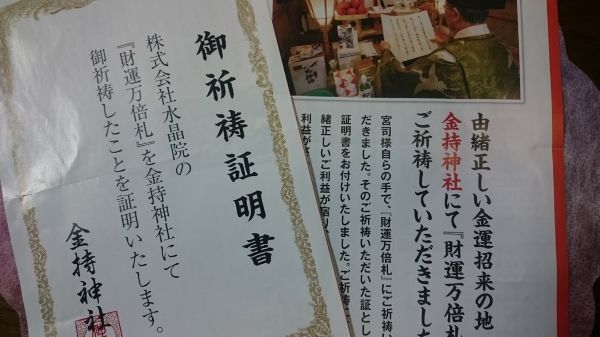 御祈祷証明書
株式会社水晶院の
『財運万倍札』を金持神社にて
御祈祷したことを証明いたします。
金持神社
由緒正しい金運招来の地
金持神社にて『財運万倍札
ご祈祷していただきました
宮司様自らの手で、『財運万倍札』にご祈祷い
だきました。そのご祈祷いただいた証とし
証明書をお付けいたしました。ご祈祷
緒正しいご利益が宿り
利益が